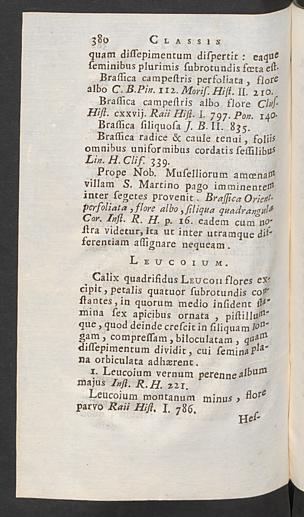 380 CLASSIS
quam dissepimentum dispertit : eaque
seminibus plurimis subrotundis fœta est.
Brassica campestris perfoliata , flore
albo C. B. Pin. 112. Moris. Hist. II. 210.
Brassica campestris albo flore Clus.
Hist. cxxvij. Raii Hist. I. 797. Pon. 140.
Brassica siliquosa J. B. II. 835.
Brassica radice & caule tenui , foliis
omnibus uniformibus cordatis sessilibus
Lin. H. Clif. 339.
Prope Nob. Muselliorum amœnam
villam S. Martino pago imminentem
inter segetes provenit. Brassica Orient.
perfoliata, flore albo, siliqua quadrangula
Cor. Inst. R. H. p. 16. eadem cum no-
stra videtur, ita ut inter utramque dif-
ferentiam assignare nequeam.
LEUCOIUM.
Calix quadrifidus LEUCOII flores ex-
cipit, petalis quatuor subrotundis con-
stantes, in quorum medio insident sta-
mina sex apicibus ornata , pistillum-
que, quod deinde crescit in siliquam lon-
gam , compressam, biloculatam , quam
dissepimentum dividit, cui semina pla-
na orbiculata adhærent.
1. Leucoium vernum perenne album
majus Inst. R. H. 221.
Leucoium montanum minus , flore
parvo Raii Hist. I. 786.
Hes-